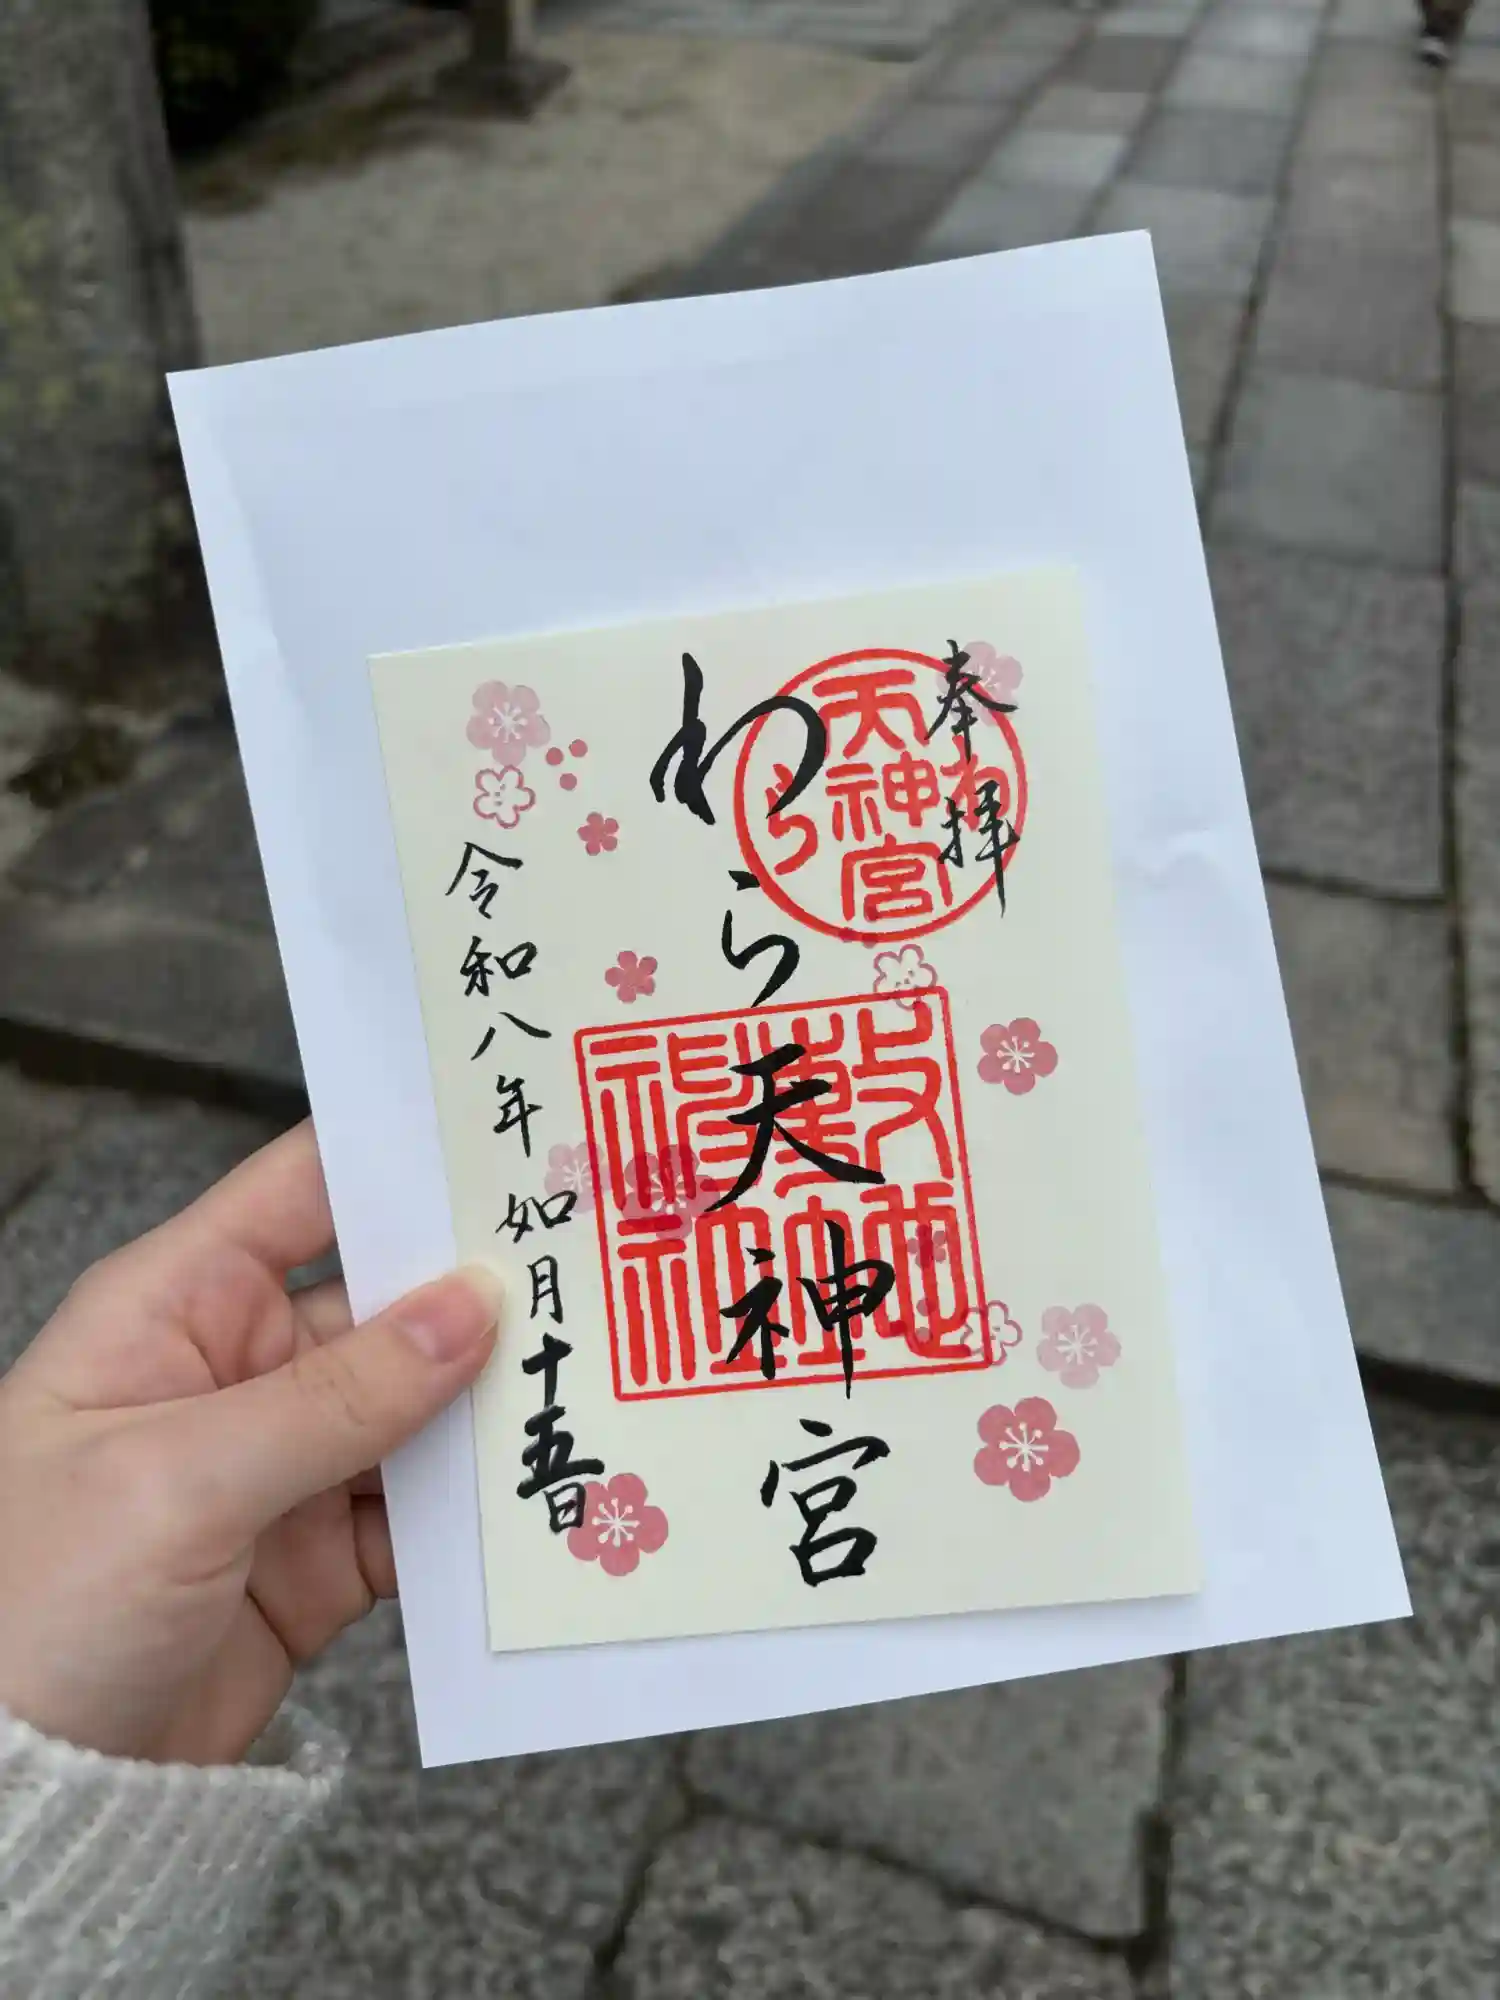 奉拝
わら天神宮
令和八年如月十五日
天神宮
わら
敷地神社